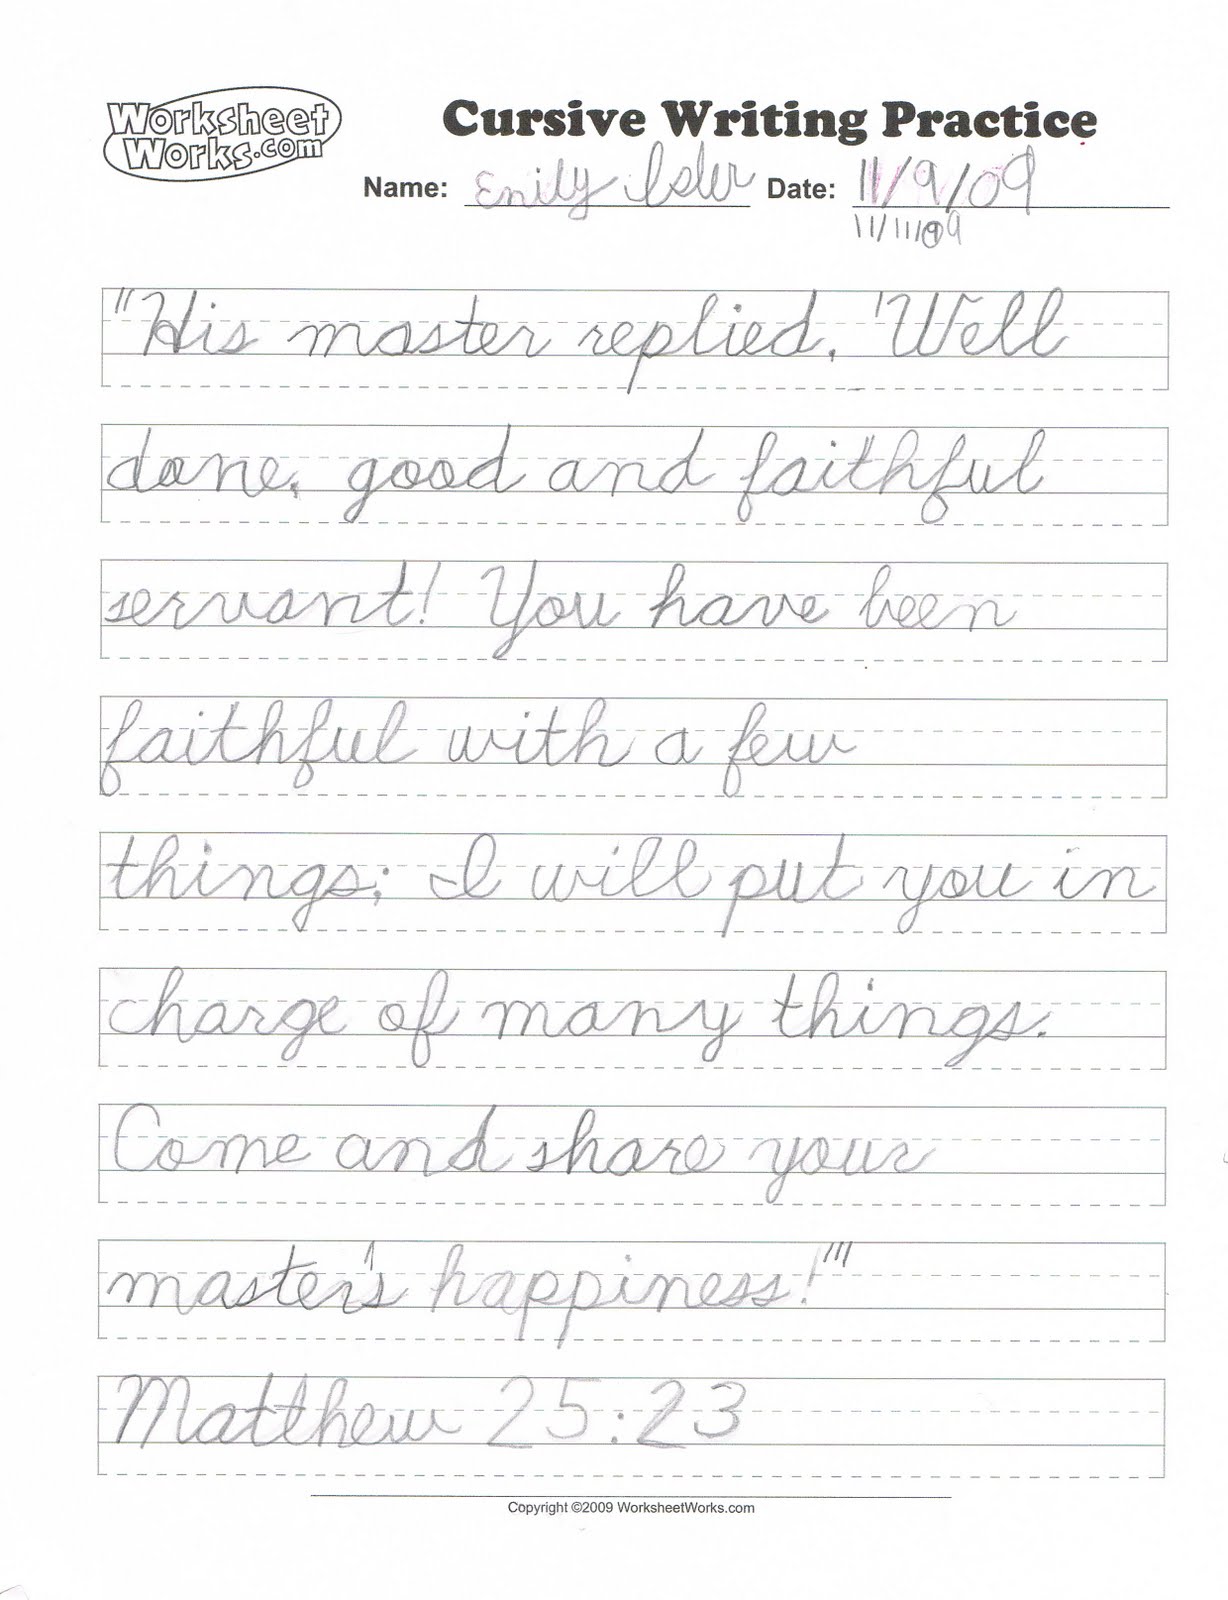 Worksheet
Works.com
Cursive Writing Practice
Name: Emily Isler Date: 11/9/09
11/11/09
"His master replied, 'Well
done, good and faithful
servant! You have been
faithful with a few
things; I will put you in
charge of many things.
Come and share your
master's happiness!'"
Matthew 25:23
Copyright ©2009 WorksheetWorks.com